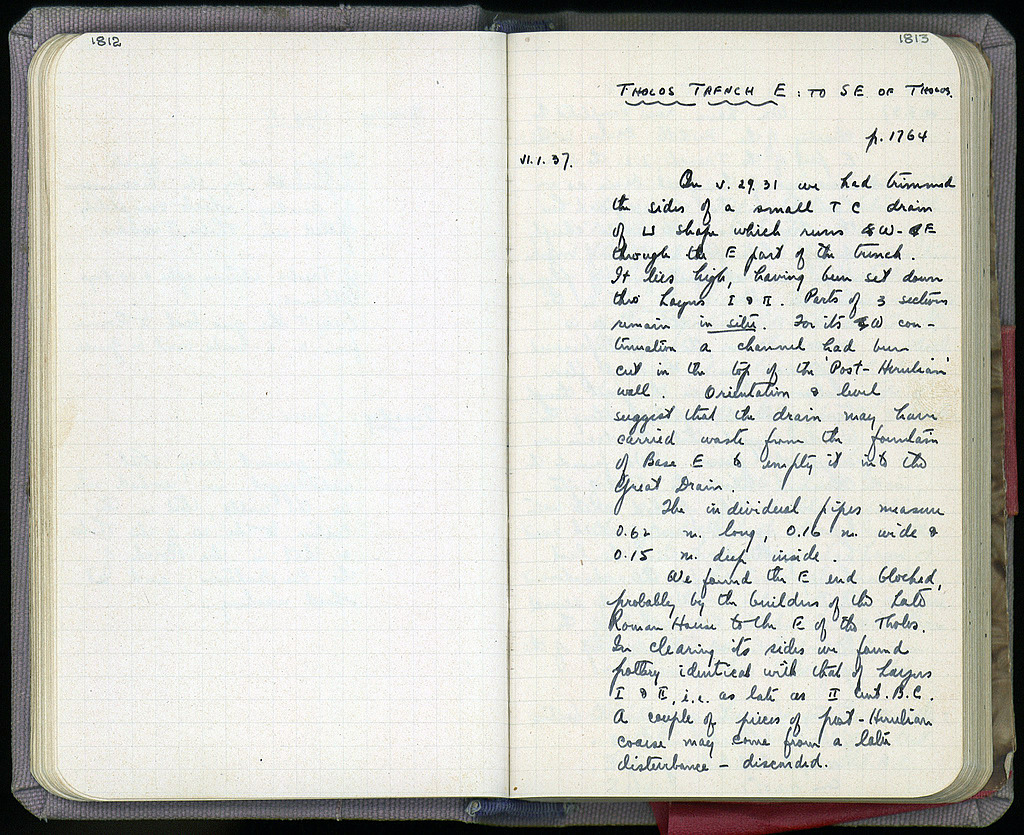 1812
1813
THOLOS TRENCH E : TO SE OF THOLOS.
p. 1764
VI.1.37.
On V. 29. 31 we had trimmed
the sides of a small T C drain
of ⊔ shape which runs W-E
through the E part of the trench.
It lies high, having been set down
thro' Layers I & II. Parts of 3 sections
remain in situ. For its W con-
tinuation a channel had been
cut in the top of the 'Post-Herulian'
wall. Orientation & level
suggest that the drain may have
carried waste from the fountain
of Base E to empty it into the
Great Drain.
The individual pipes measure
0.62 m. long, 0.16 m. wide &
0.15 m. deep inside.
We found the E end blocked,
probably by the builders of the Late
Roman House to the E of the Tholos.
In clearing its sides we found
pottery identical with that of Layers
I & II, i.e. as late as II cent. B.C.
A couple of pieces of post-Herulian
coarse may come from a late
disturbance - discarded.